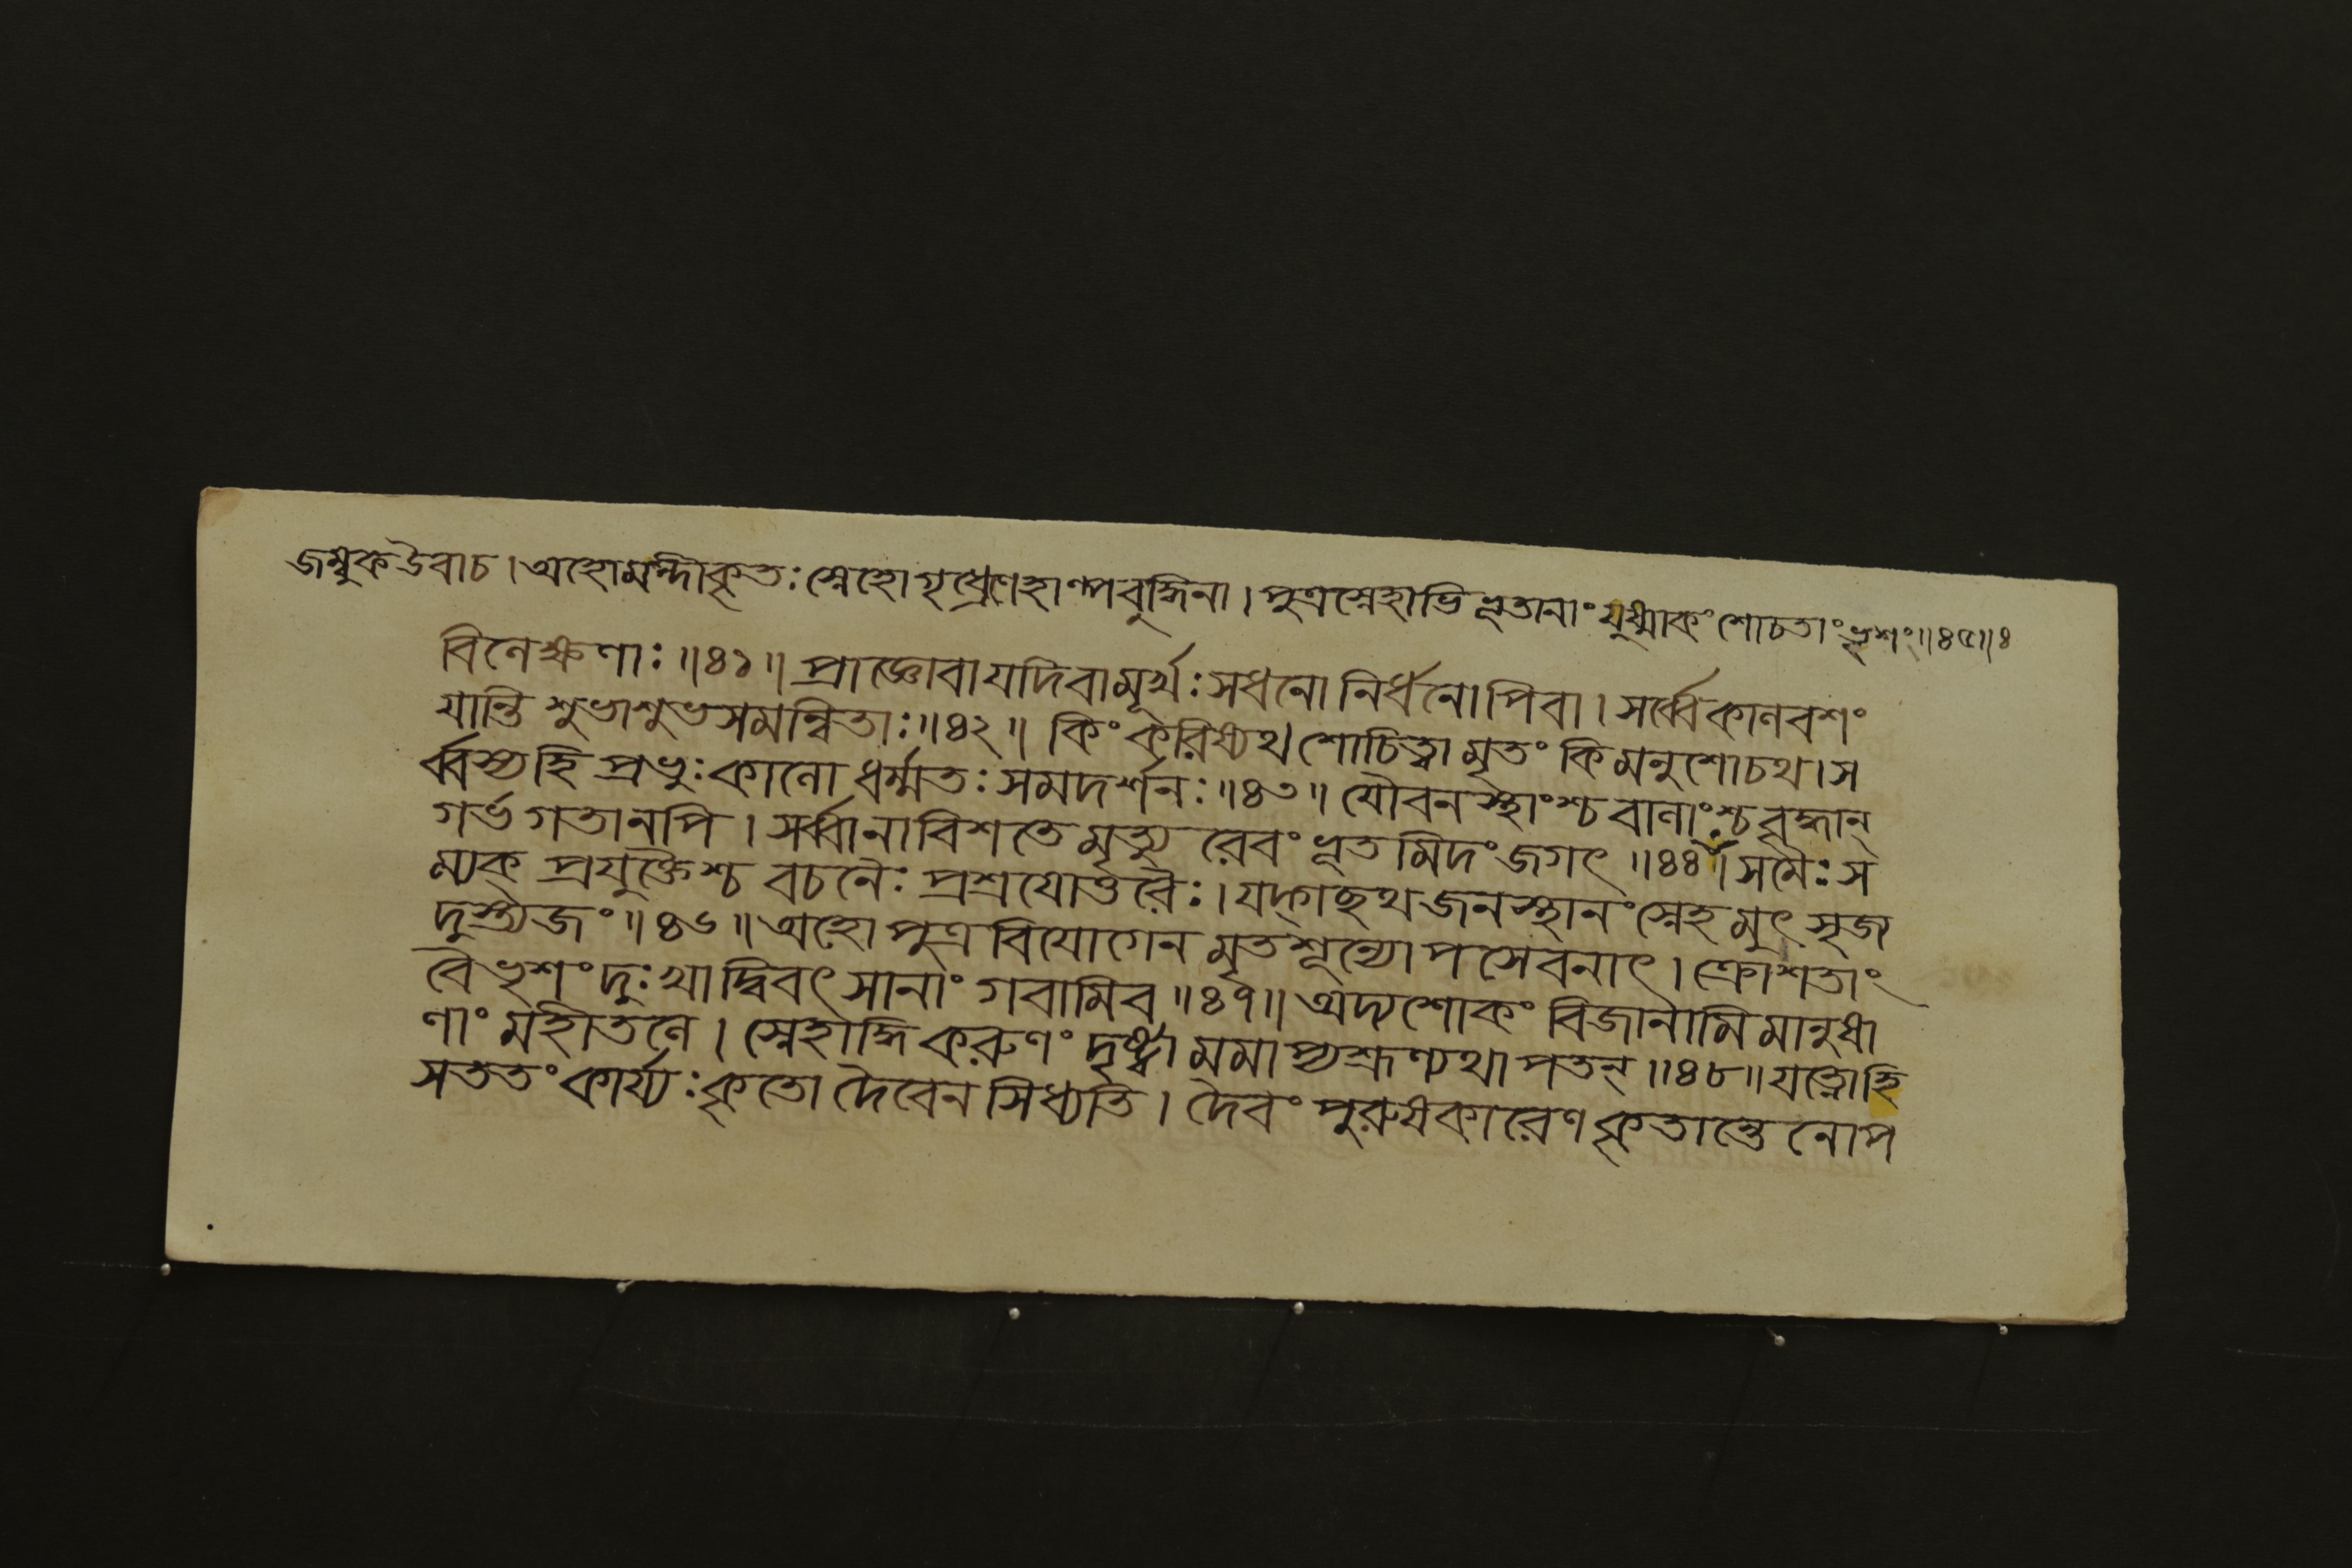 জম্বুকউবাচ। অহোমন্দীকৃতঃ স্নেহো গৃধ্রেণেহাল্পবুদ্ধিনা। পুত্রস্নেহাভিভূতানাং যুষ্মাকং শোচতাং ভৃশং॥৪৫॥৪
বিলেক্ষণাঃ॥৪১॥ প্রাজ্ঞোবা যদিবামূর্খঃ সধনো নির্ধনোপিবা। সর্ব্বেকালবশং
যান্তি শুভাশুভসমন্বিতাঃ॥৪২॥ কিংকরিষ্যথ শোচিত্বা মৃতং কিমনুশোচথ। স
র্ব্বস্যহি প্রভুঃকালো ধর্ম্মতঃ সমদর্শনঃ॥৪৩॥ যৌবনস্থাংশ্চ বালাংশ্চ বৃদ্ধান্
গর্ভগতানপি। সর্ব্বানাবিশতে মৃত্যুরেবং ভূতমিদং জগৎ॥৪৪॥ সমৈঃ স
ম্যক্ প্রযুক্তৈশ্চ বচনৈঃ প্রশ্রয়োত্তরৈঃ। যদ্গচ্ছথ জনস্থানং স্নেহমুৎসৃজ্য
দুস্ত্যজং॥৪৬॥ অহো পুত্রবিযোগেন মৃতশূন্যোপসেবনাৎ। ক্রোশতাং
বৈ ভৃশং দুঃখাদ্বিবৎসানাং গবামিব॥৪৭॥ অদ্যশোকং বিজানামি মানুষা
ণাং মহীতলে। স্নেহাদ্ধি করুণং দৃষ্ট্বা মমাপ্যশ্রূণ্যথাপতন্॥৪৮॥ যত্নোহি
সততং কার্য্যঃ কৃতো দৈবেন সিধ্যতি। দৈবং পুরুষকারেণ কৃতান্তেনোপ